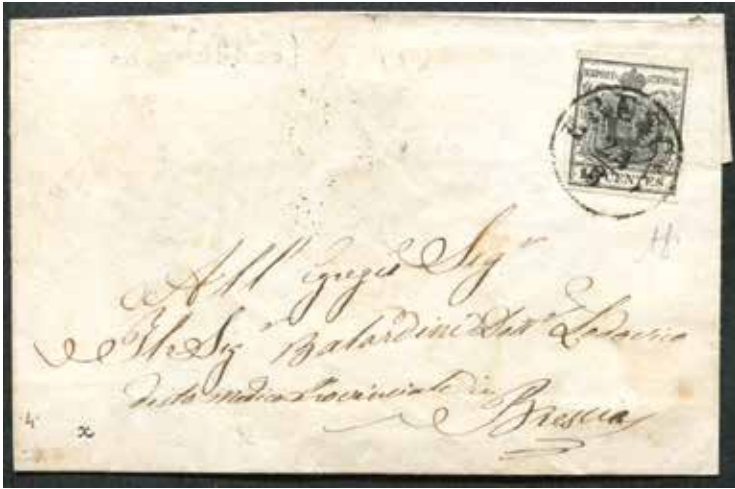 10 CENTES
All' Egregio Sigr
Il Sigr Balardini Dottr Lodovico
Medico Provinciale in
Brescia
4
x